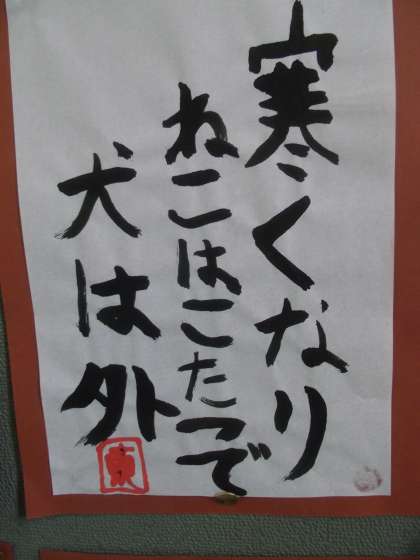 寒くなり
ねこはこたつで
犬は外
東